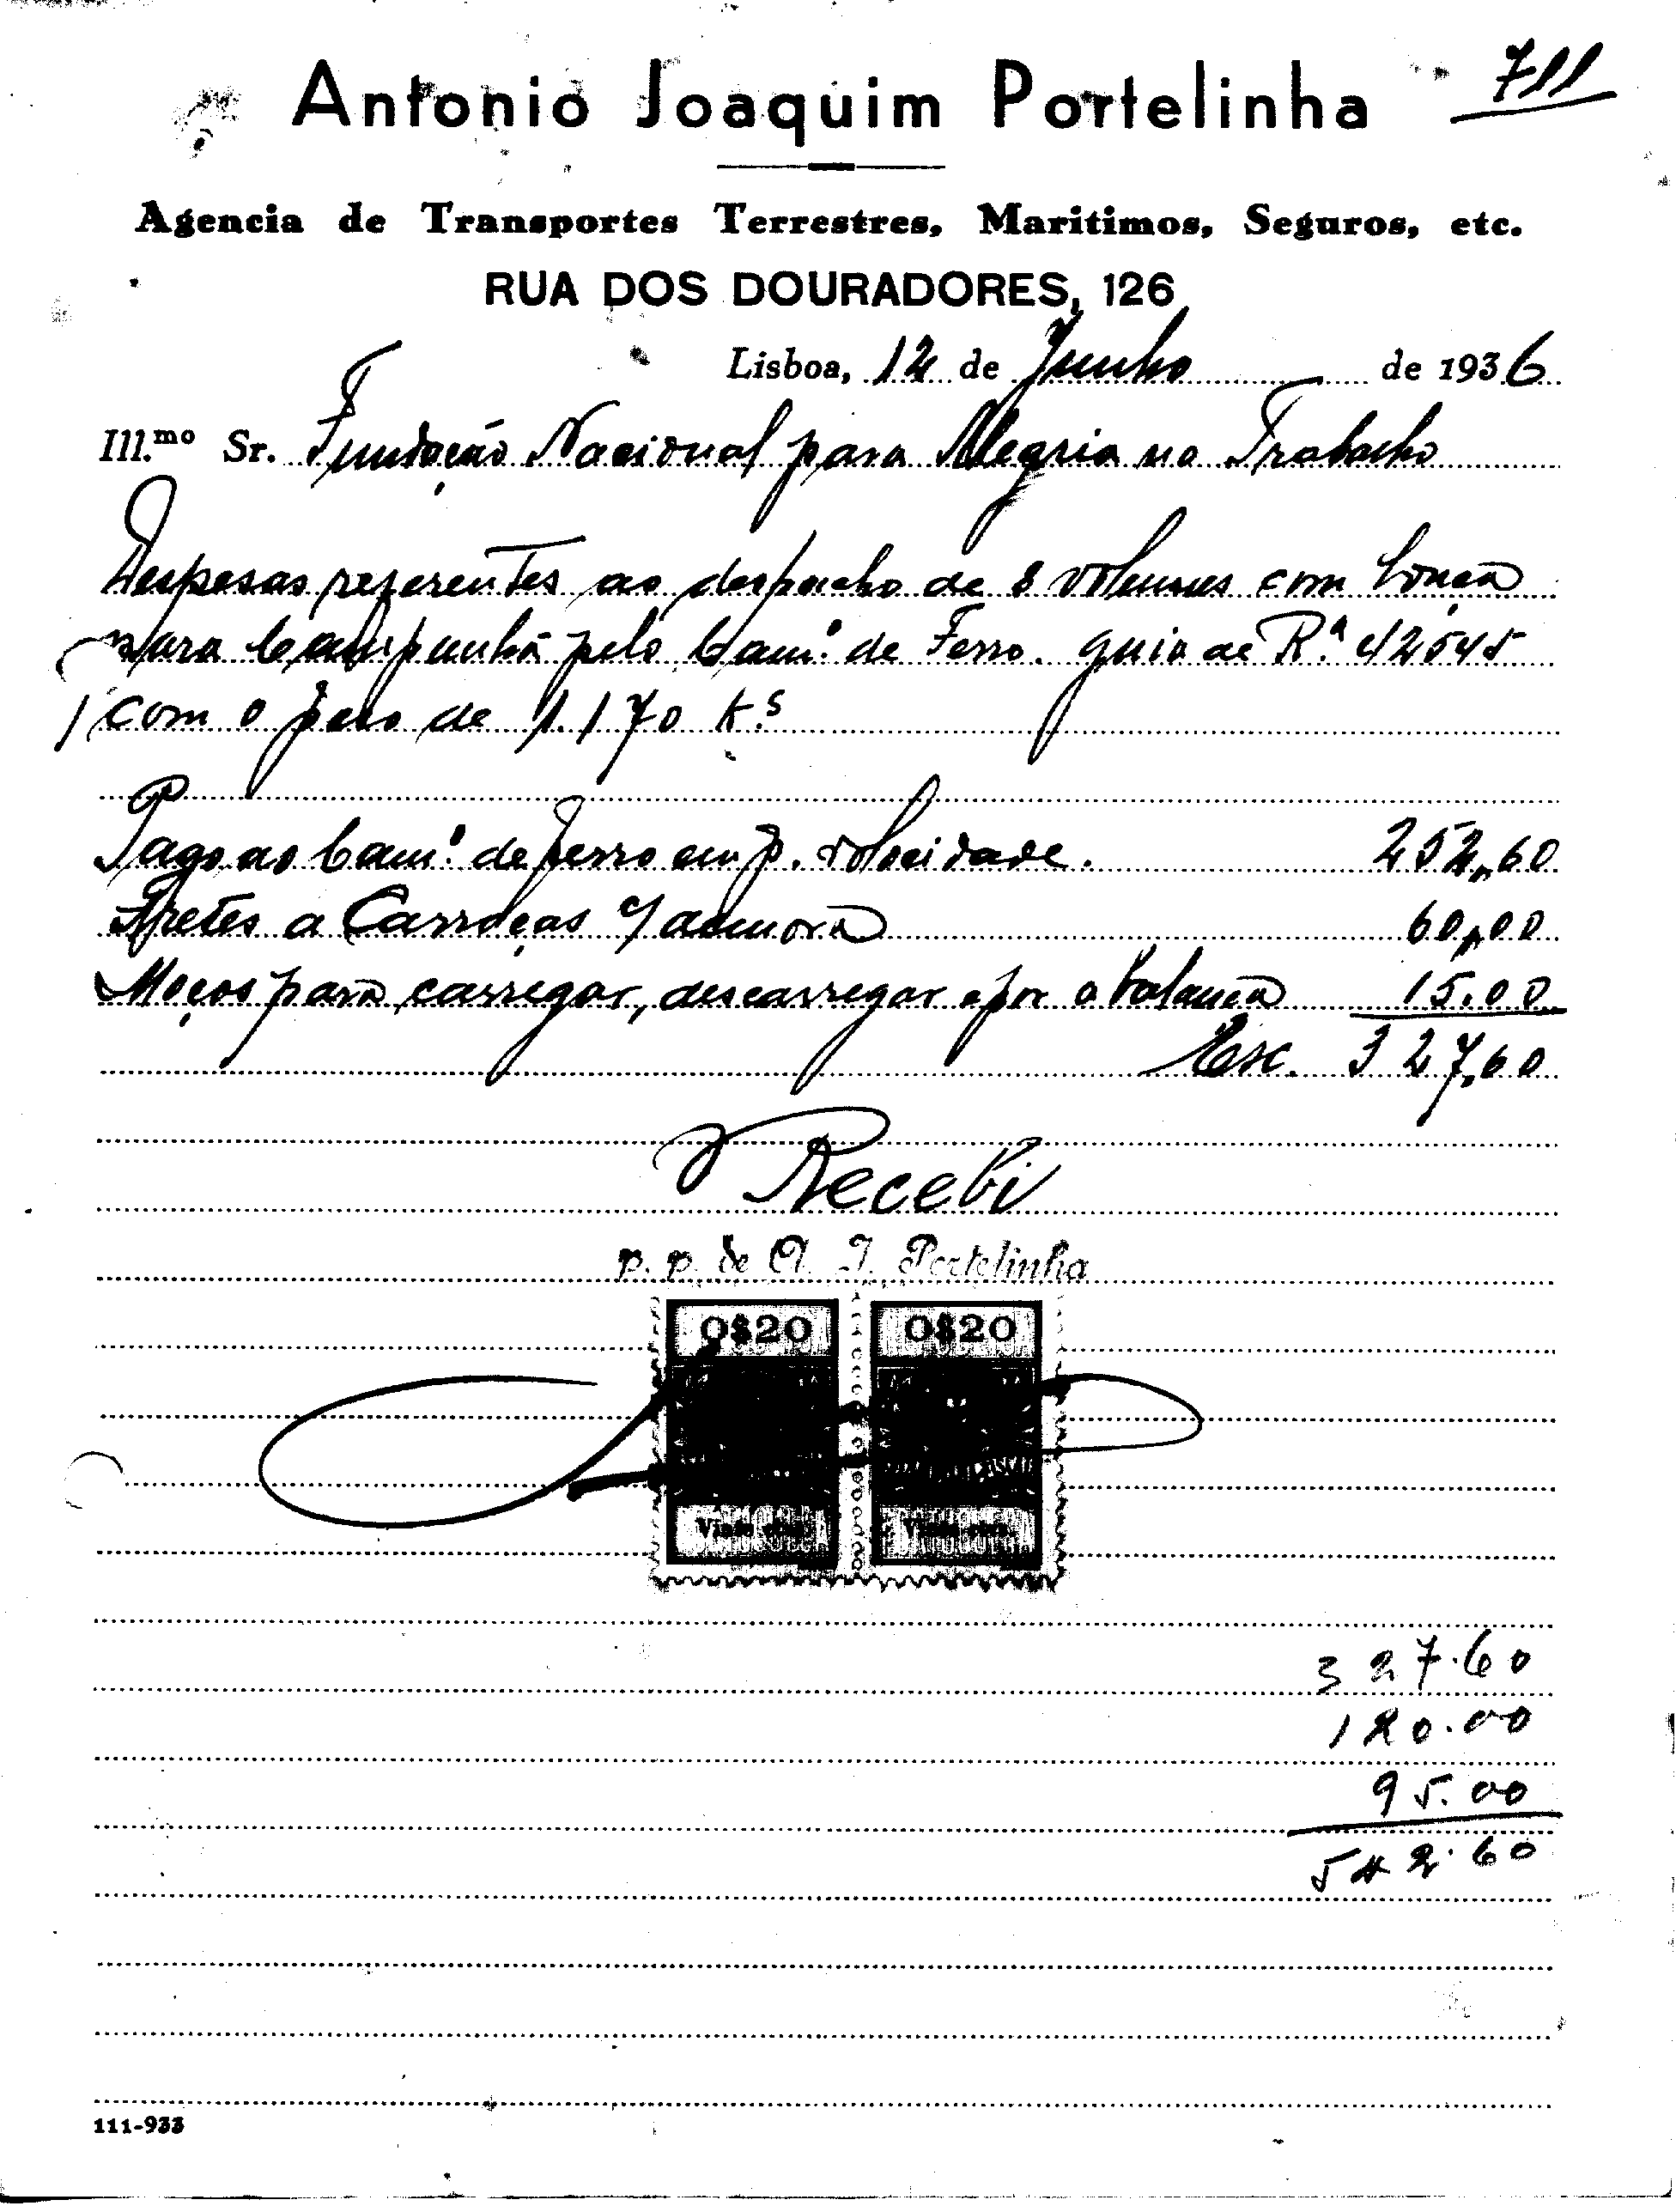 711
Antonio Joaquim Portelinha
Agencia de Transportes Terrestres, Maritimos, Seguros, etc.
RUA DOS DOURADORES, 126
Lisboa, 12 de Junho de 1936
Ill.mo Sr. Fundação Nacional para Alegria no Trabalho
Despesas referentes ao despacho de 8 volumes com louça
para Campanhã pelo Cam.o de Ferro. guia de R.a 42545
com o peso de 1.170 k.s
Pago ao Cam.o de ferro em p. velocidade. 252,60
Fretes a Carroças 60,00
Moços para carregar, descarregar e por a balança 15.00
Esc. 327,60
Recebi
p. p. de A. J. Portelinha
0$20 0$20
Vinte ctvs. Vinte ctvs.
327.60
120.00
95.00
542.60
111-933